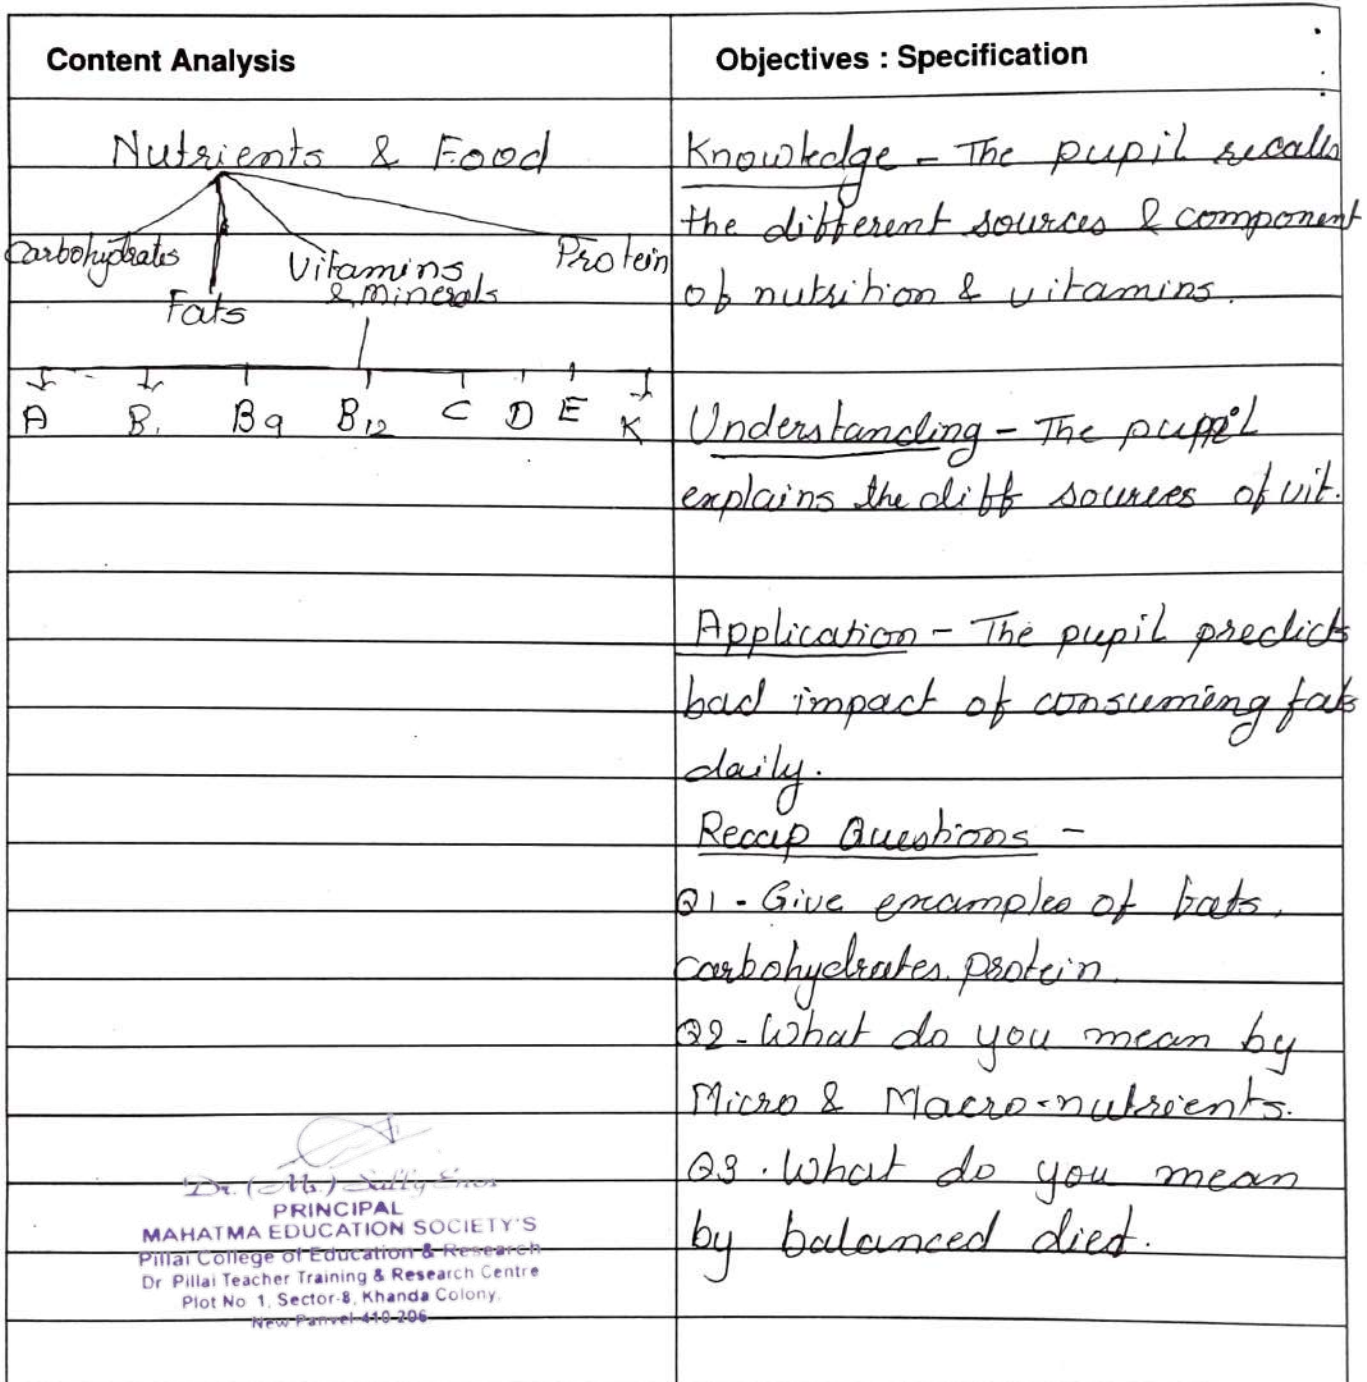 Content Analysis
Nutrients & Food
Carbohydrates
Fats
Vitamins
& minerals
Protein
A B1 B9 B12 C D E K
Dr. (Ms.) Sally Enos
PRINCIPAL
MAHATMA EDUCATION SOCIETY'S
Pillai College of Education & Research
Dr Pillai Teacher Training & Research Centre
Plot No 1, Sector-8, Khanda Colony,
New Panvel-410 206
Objectives : Specification
Knowledge - The pupil recalls
the different sources & component
of nutrition & vitamins.
Understanding - The pupil
explains the diff sources of vit.
Application - The pupil predicts
bad impact of consuming fats
daily.
Recap Questions -
Q1 - Give examples of fats,
carbohydrates, protein.
Q2 - What do you mean by
Micro & Macro-nutrients.
Q3. What do you mean
by balanced died.